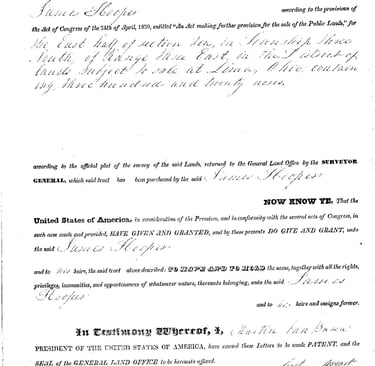 James Hooper according to the provisions of
the Act of Congress of the 24th of April, 1820, entitled "An Act making further provision for the sale of the Public Lands," for
the East half of section ten, in Township three
South, of Range three East, in the District of
lands subject to sale at Lima, Ohio, contain
ing three hundred and twenty acres
according to the official plat of the survey of the said Lands, returned to the General Land Office by the SURVEYOR
GENERAL, which said tract has been purchased by the said James Hooper
NOW KNOW YE, That the
United States of America, in consideration of the Premises, and in conformity with the several acts of Congress, in
such case made and provided, HAVE GIVEN AND GRANTED, and by these presents DO GIVE AND GRANT, unto
the said James Hooper
and to his heirs, the said tract above described: TO HAVE AND TO HOLD the same, together with all the rights,
privileges, immunities, and appurtenances of whatsoever nature, thereunto belonging, unto the said James
Hooper
and to his heirs and assigns forever.
In Testimony Whereof, I, Martin Van Buren
PRESIDENT OF THE UNITED STATES OF AMERICA, have caused these Letters to be made PATENT, and the
SEAL of the GENERAL LAND OFFICE to be hereunto affixed.